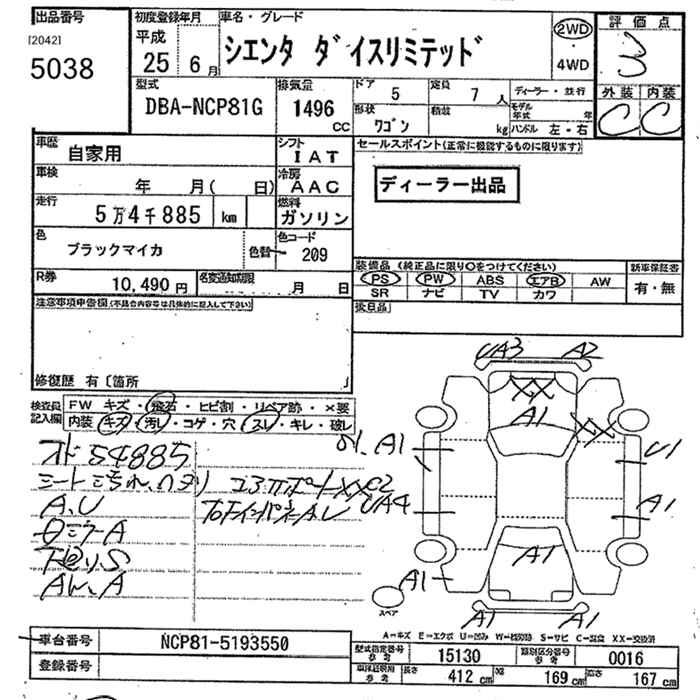 出品番号
[2042]
5038
初度登録年月
平成
25 6月
車名・グレード
シエンタ ダイスリミテッド
2WD
・
4WD
評価点
3
外装 内装
C C
型式
DBA-NCP81G
排気量
1496
CC
ドア
5
定員
7 人
形状
ワゴン
積載
kg
ディーラー・並行
モデル年式 年
ハンドル 左・右
車歴
自家用
シフト
IAT
車検
年 月( 日)
冷房
AAC
走行
5万4千885 km
燃料
ガソリン
色
ブラックマイカ
色替
色コード
209
R券
10,490 円
名変通知期限
月 日
セールスポイント(正常に機能するものに限ります)
ディーラー出品
装備品 (純正品に限り○をつけてください)
PS PW ABS エアB AW
SR ナビ TV カワ
新車保証書
有・無
後日品
注意事項申告欄(不具合内容等は具体的に記入して下さい)
修復歴 有〔箇所 〕
検査員記入欄
FW キズ・飛石・ヒビ割・リペア跡・×要
内装 キズ・汚レ・コゲ・穴・スレ・キレ・破レ
54885
A.U
UA3 A2
XX
A1
XX
A1
U1
UA4
A1
A1
A1
A1 A1
スペア
A=キズ E=エクボ U=凹み W=補修跡 S=サビ C=腐食 XX=交換済
車台番号
NCP81-5193550
登録番号
型式指定番号
参考
15130
類別区分番号
参考
0016
車検証明用
参考
長さ
412 cm
幅
169 cm
高さ
167 cm